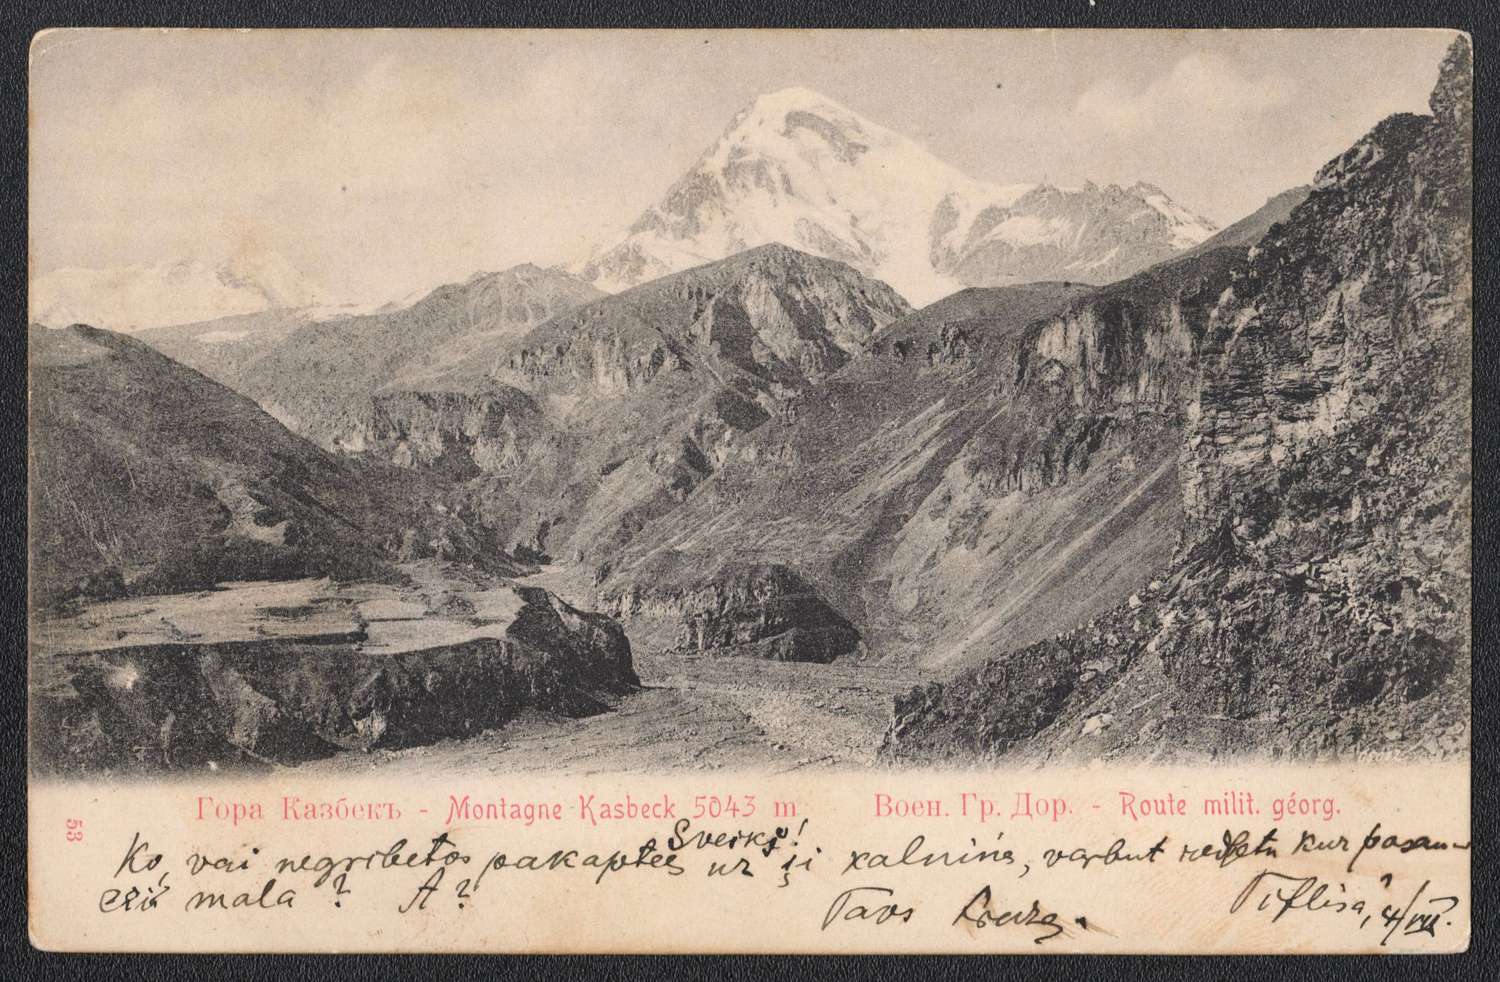 Гора Казбекъ - Montagne Kasbeck 5043 m Воен. Гр. Дор. - Route milit. géorg.
53
Sveiks!
Ko, vai negribetos pakaptees uz šį kalninu, varbut redzetu kur pasau-
mala? A?
Tavs
Tiflisā, 4/VII.